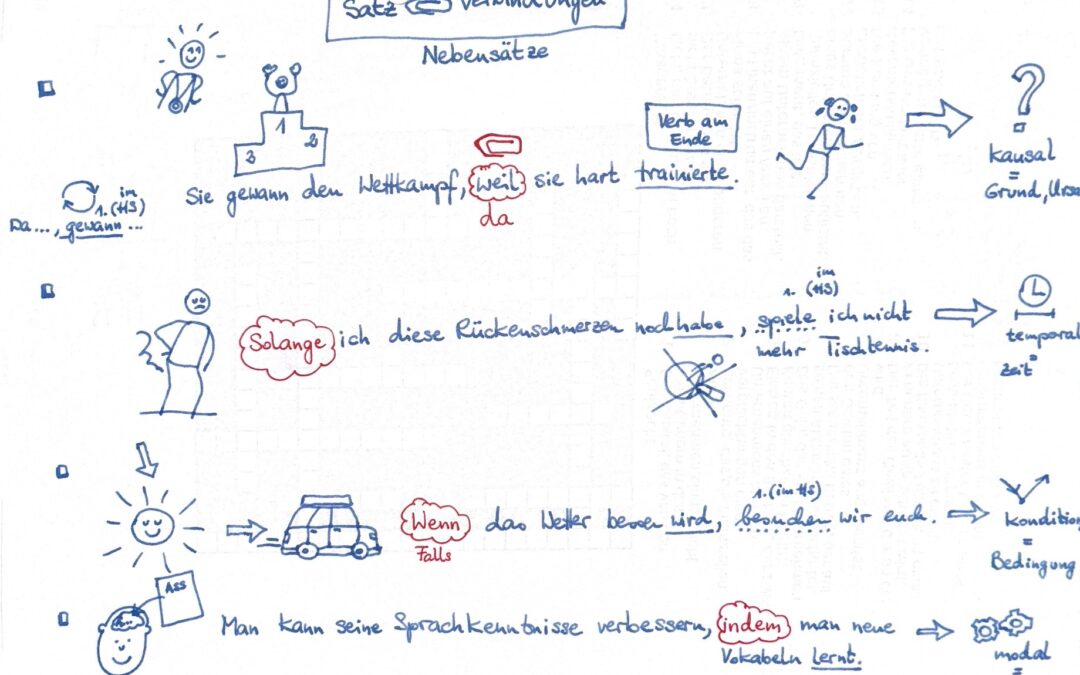 Satz Verbindungen
Nebensätze
1
2
3
Verb am
Ende
?
kausal
=
Grund, Ursa
Sie gewann den Wettkampf, weil sie hart trainierte.
da
im
1. (HS)
Da ..., gewann ...
im
1. (HS)
Solange ich diese Rückenschmerzen noch habe, spiele ich nicht
mehr Tischtennis.
temporal
=
Zeit
1. (im HS)
Wenn das Wetter besser wird, besuchen wir euch.
Falls
kondition
=
Bedingung
Man kann seine Sprachkenntnisse verbessern, indem man neue
Vokabeln lernt.
modal
=